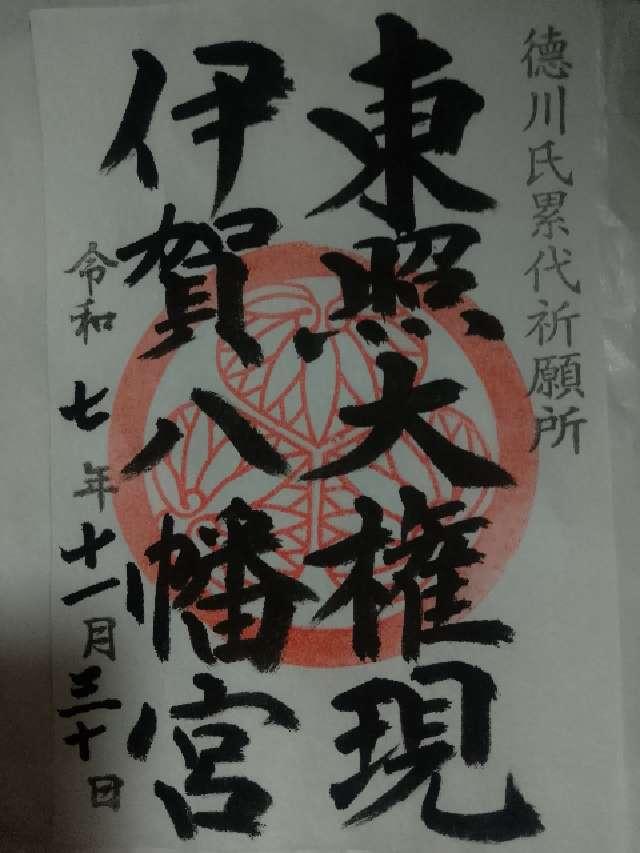 徳川氏累代祈願所
東照大権現
伊賀八幡宮
令和七年十一月三十日